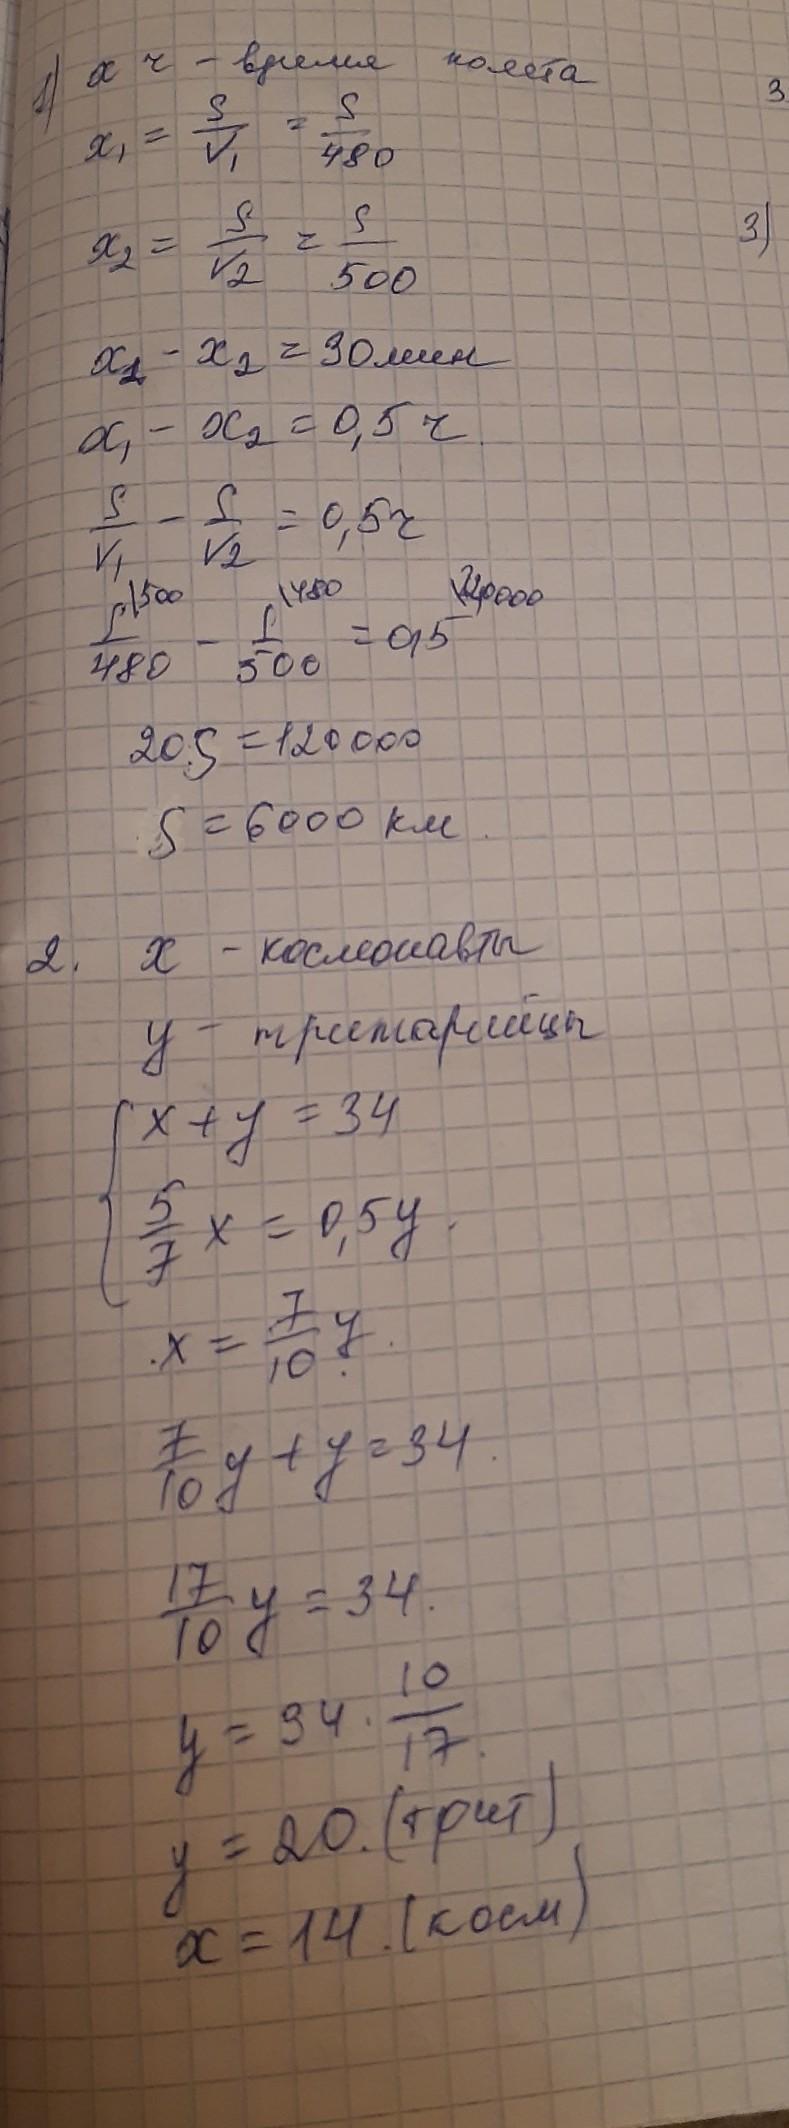 1) x ч - время полета
x₁ = S/V₁ = S/480
x₂ = S/V₂ = S/500
x₁ - x₂ = 30 мин
x₁ - x₂ = 0,5 ч
S/V₁ - S/V₂ = 0,5 ч
S/480 \500 - S/500 \480 = 0,5 \240000
20S = 120000
S = 6000 км.
2. x - космонавты
y - тритарийцы
{ x + y = 34
5/7 x = 0,5y.
x = 7/10 y.
7/10 y + y = 34.
17/10 y = 34.
y = 34 · 10/17.
y = 20. (трит)
x = 14. (косм)
3
3)